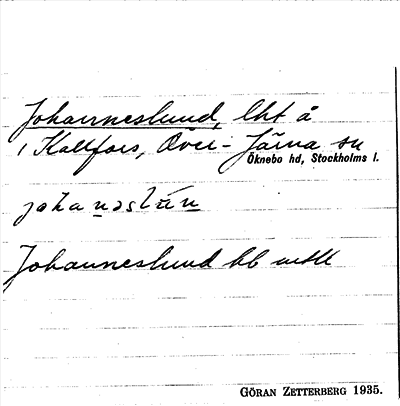 Johanneslund, lht å
i Kallfors, Över-Järna sn
Öknebo hd, Stockholms l.
Johanneslund bb
GÖRAN ZETTERBERG 1935.